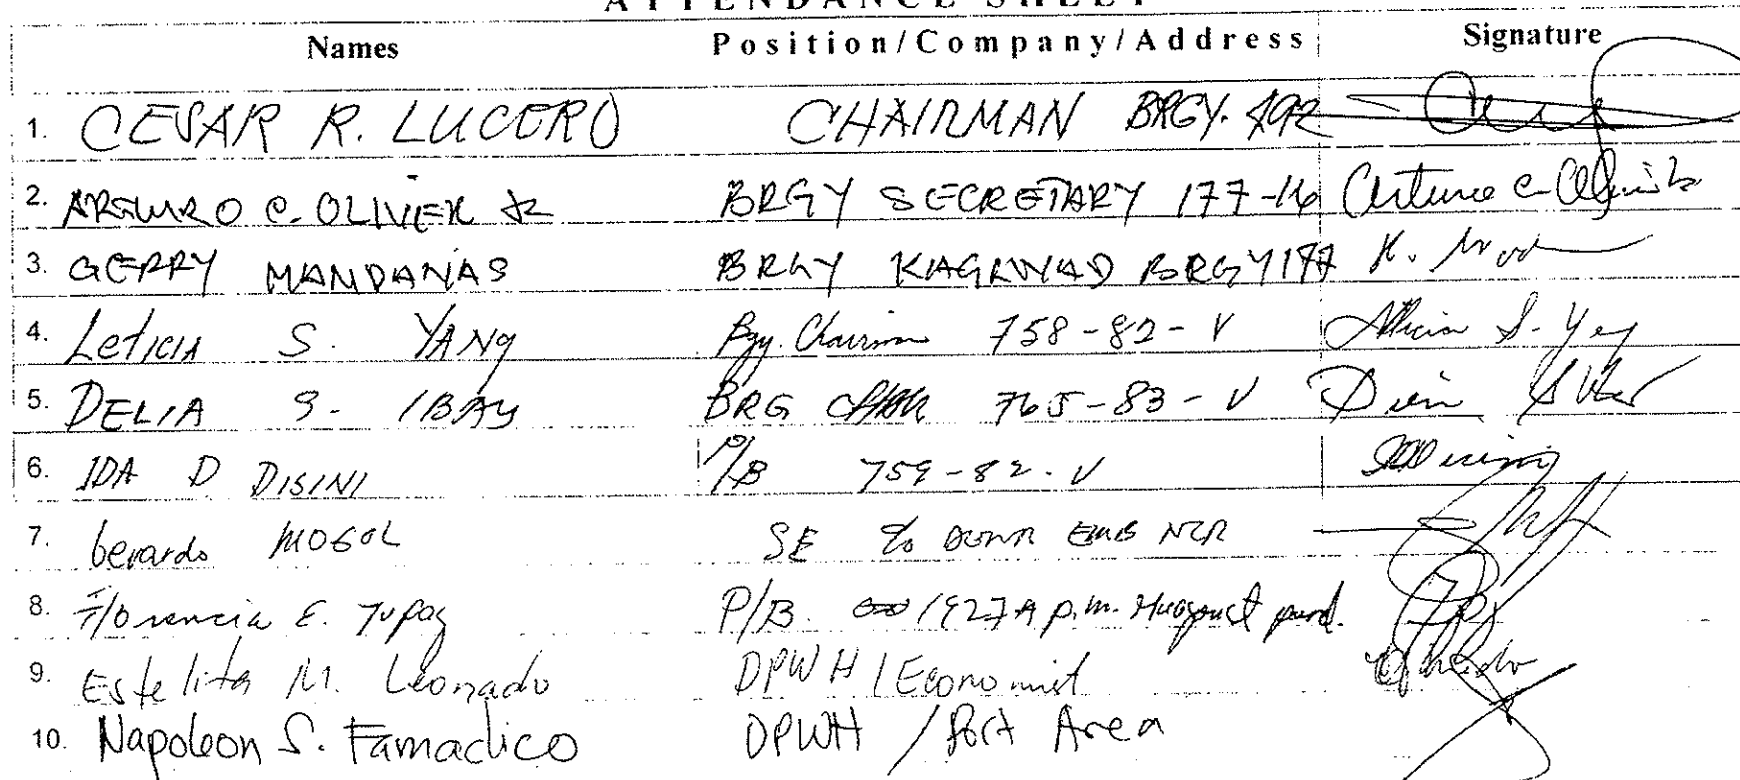 ATTENDANCE SHEET
Names Position/Company/Address Signature
1. CESAR R. LUCERO CHAIRMAN BRGY.
2. ARTURO C. OLIVER JR BRGY SECRETARY 177-16
3. GERRY MANDANAS BRGY KAGAWAD BRGY 177
4. Leticia S. YANG Bgy. Chairman 758-82-V
5. DELIA S. IBAY BRG 765-83-V
6. IDA D DISINI P/B 759-82-V
7. Gerardo MOGOL SE c/o DENR EMB NCR
8. Florencia E. P/B. 1927 A p.m.
9. Estelita M. Leonado DPWH / Economist
10. Napoleon S. Famadico DPWH / Port Area